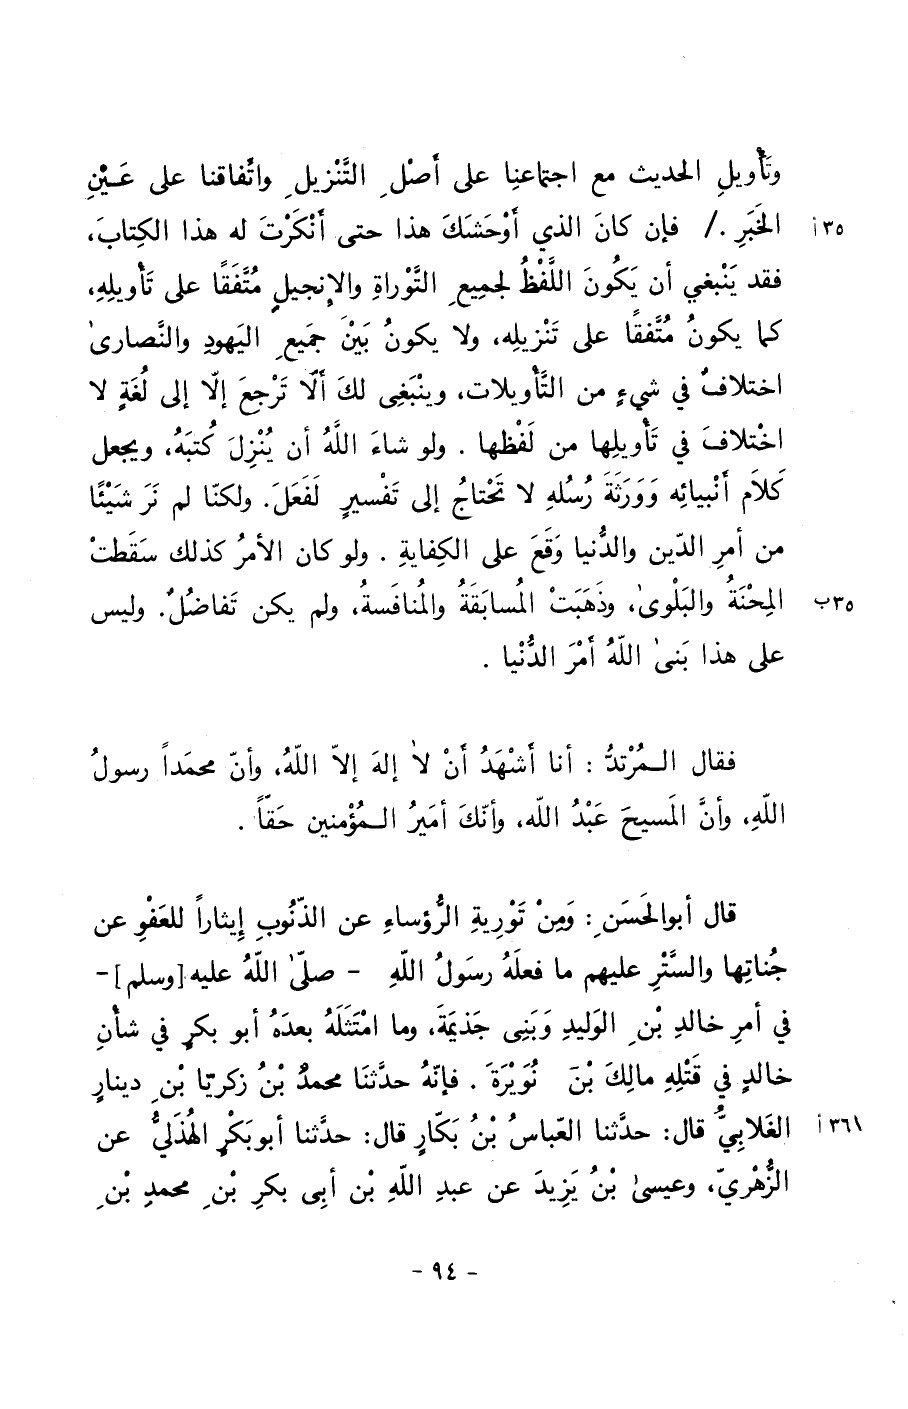 وتَأْويلِ الحديث مع اجتماعنِا على أَصْلِ التَّنْزيلِ واتّفاقنا على عَـيْنِ
٣٥أ الخَبَرِ ./ فإن كانَ الذي أَوْحَشَكَ هذا حتى أَنْكَرْتَ له هذا الكِتابَ،
فقد يَنْبغي أن يَكُونَ اللَّفْظُ لجميعِ التَّوْراةِ والإنجيلِ مُتَّفَقًا على تَأويلِهِ،
كما يكونُ مُتَّفقًا على تَنْزيلِه، ولا يكونُ بَيْنَ جمَيعِ اليَهودِ والنَّصارىٰ
اختلافٌ في شيءٍ من التَّأويلات، وينْبَغِى لكَ ألّا تَرْجعَ إلّا إلى لُغَةٍ لا
اخْتلافَ في تَأويلِها من لَفْظها . ولو شاءَ اللَّهُ أن يُنْزِلَ كُتبَهُ، ويجعل
كَلاَم أَنْبيائِه وَوَرَثَةَ رُسُلهِ لا تَحْتاجُ إلى تَفْسيرٍ لَفَعَلَ. ولكنّا لم نَرَ شَيْئًا
من أمرِ الدّين والدُّنيا وَقَعَ على الكِفايةِ . ولو كان الأمرُ كذلك سَقَطتْ
٣٥ب المِحْنَةُ والبَلْوىٰ، وذَهَبَتْ المُسابَقَةُ والمُنافَسةُ، ولم يكن تَفاضُلٌ. وليس
على هذا بَنىٰ اللّهُ أَمْرَ الدُّنْيا .
فقال الـمُرْتدُّ : أنا أَشْهَدُ أَنْ لاٰ إلهَ إلاّ اللّهُ، وأنّ محمَداً رسولُ
اللّهِ، وأنَّ المَسيحَ عَبْدُ اللّه، وأنّكَ أمَيرُ الـمُؤْمنين حَقّاً .
قال أبوالحَسَنِ : وَمِنْ تَوْرِيةِ الرُّؤساءِ عن الذّنُوبِ إيثاراً للعَفْوِ عن
جُناتِها والسَّتْرِ عليهم ما فعلَهُ رسَولُ اللّهِ - صلّىٰ اللّهُ عليه[وسلم]-
في أمرِ خالدِ بْنِ الوَليدِ وَبَنِى جَذيمَةَ، وما امْتَثَلَهُ بعدَهُ أبو بكرٍ في شأنِ
خالدٍ في قَتْلِهِ مالِكَ بْنَ نُوَيْرَةَ . فإنّهُ حدَّثَنَا محمدُ بْنُ زكريّا بْنِ دينارٍ
٣٦أ\ الغَلابِيُّ قال: حدَّثنا العَباسُ بْنُ بَكّارٍ قال: حدَّثنا أبوبَكْرٍ الهُذَلىُّ عن
الزُّهْريّ، وعيسىٰ بْنُ يَزِيدَ عن عبدِ اللّهِ بْن أبِى بكرِ بْنِ محمدِ بْنِ
- ٩٤ -